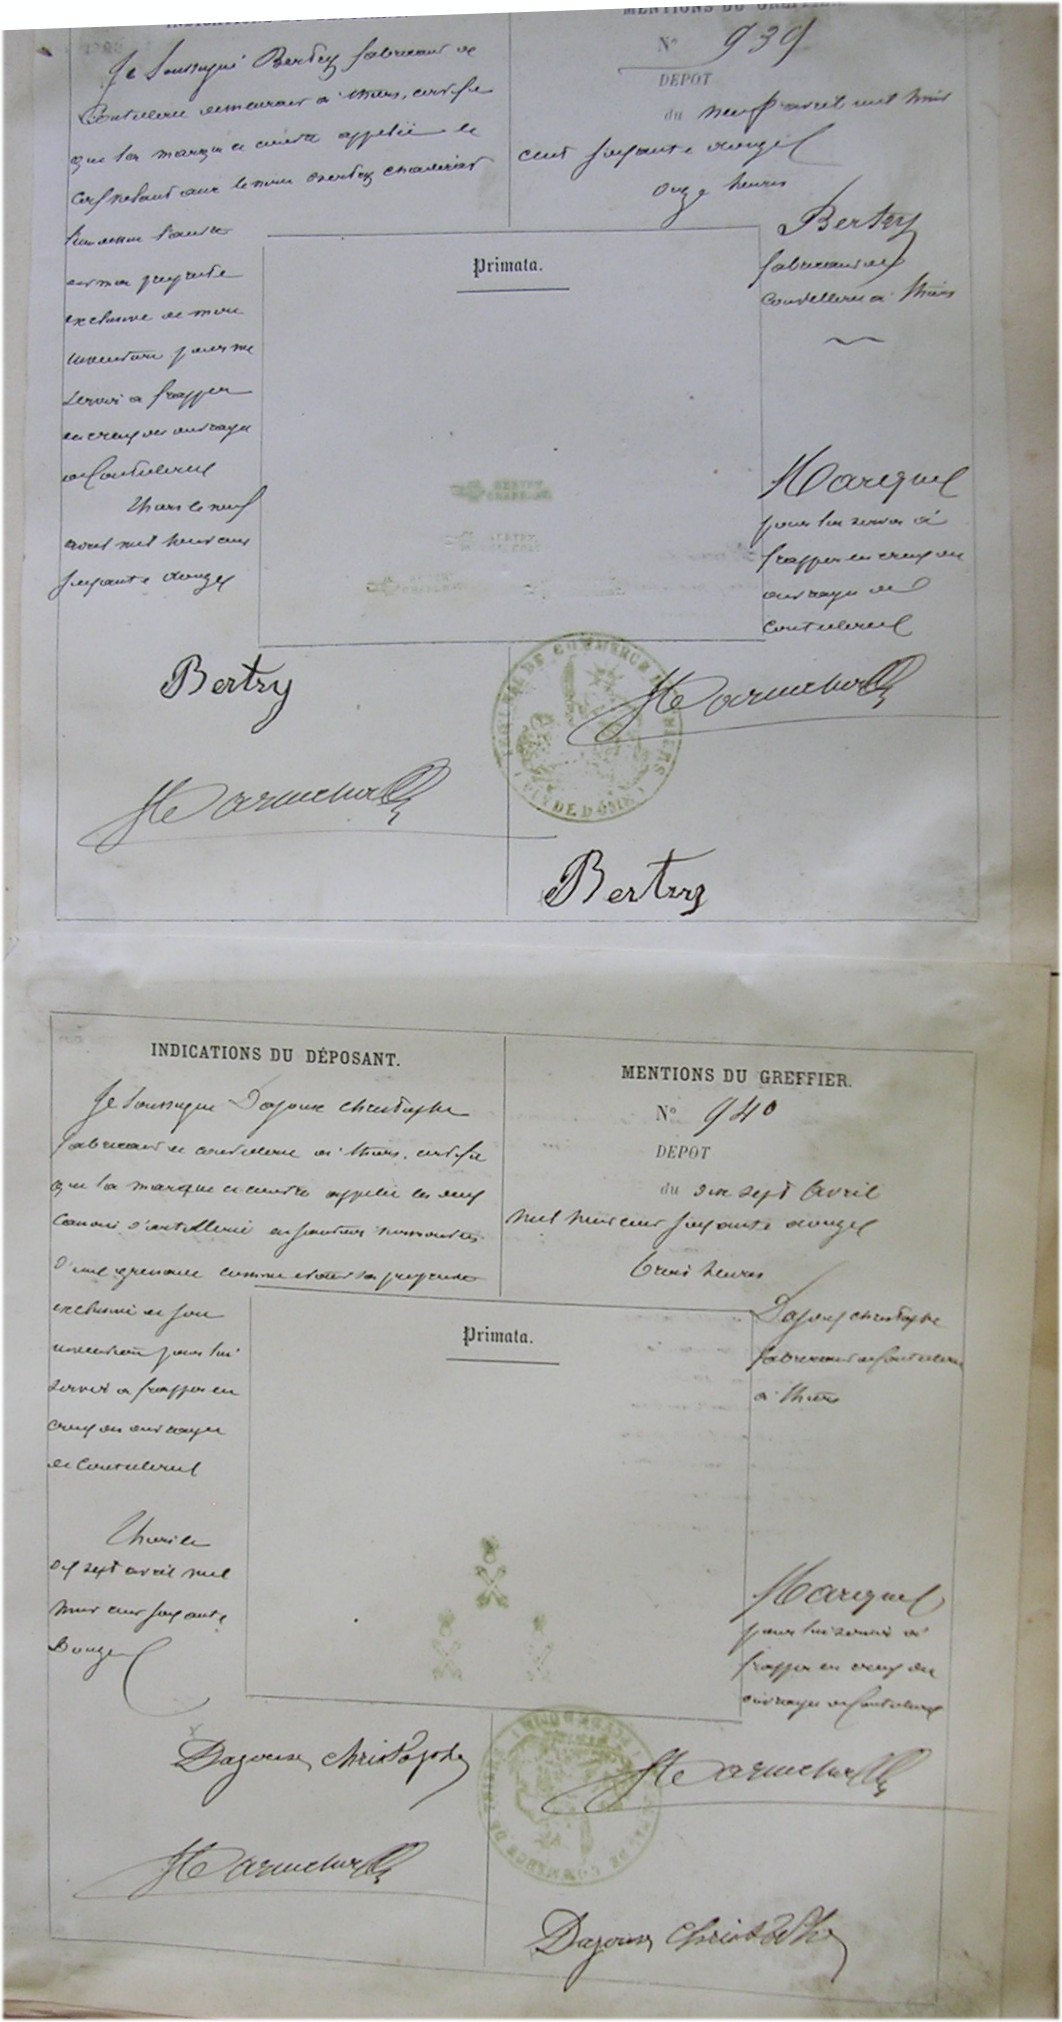 MENTIONS DU GREFFIER.
Je soussigné Bertry fabricant de
Coutellerie demeurant à Thiers, certifie
que la marque ci contre appelée le
avec le nom Bertry Chambriard
est ma propriété
exclusive de mon
invention pour me
servir à frapper
en creux des ouvrages
de Coutellerie
Thiers le neuf
avril mil huit cent
soixante douze
Bertry
Nº 939
DEPOT
du neuf avril mil huit
cent soixante douze
onze heures
Bertry
fabricant de
coutellerie à Thiers
Primata.
BERTRY
Marque
pour lui servir à
frapper en creux des
ouvrages de
coutellerie
TRIBUNAL DE COMMERCE DE THIERS
(PUY DE DÔME)
Bertry
INDICATIONS DU DÉPOSANT.
Je soussigné Dajoux Christophe
fabricant de coutellerie à Thiers, certifie
que la marque ci contre appelée les deux
canons d'artillerie en sautoir surmontés
d'une grenade comme étant sa propriété
exclusive de son
invention pour lui
servir à frapper en
creux des ouvrages
de Coutellerie
Thiers le
dix sept avril mil
huit cent soixante
Douze
Dajoux Christophe
MENTIONS DU GREFFIER.
Nº 940
DEPOT
du dix sept Avril
mil huit cent soixante douze
trois heures
Dajoux Christophe
fabricant de Coutellerie
à Thiers
Primata.
Marque
pour lui servir à
frapper en creux des
ouvrages de Coutellerie
TRIBUNAL DE COMMERCE DE THIERS
(PUY DE DÔME)
Dajoux Christophe